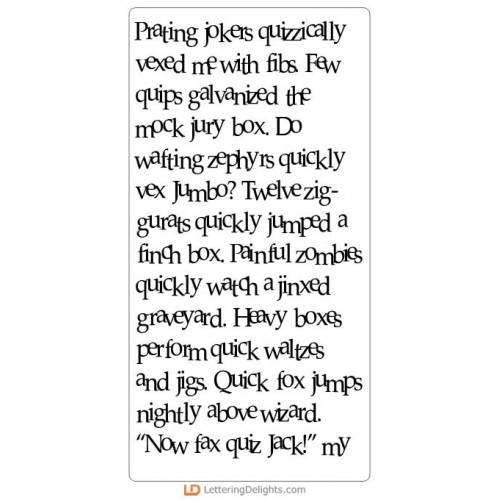 Prating jokers quizzically
vexed me with fibs. Few
quips galvanized the
mock jury box. Do
wafting zephyrs quickly
vex Jumbo? Twelve zig-
gurats quickly jumped a
finch box. Painful zombies
quickly watch a jinxed
graveyard. Heavy boxes
perform quick waltzes
and jigs. Quick fox jumps
nightly above wizard.
“Now fax quiz Jack!” my
LD LetteringDelights.com